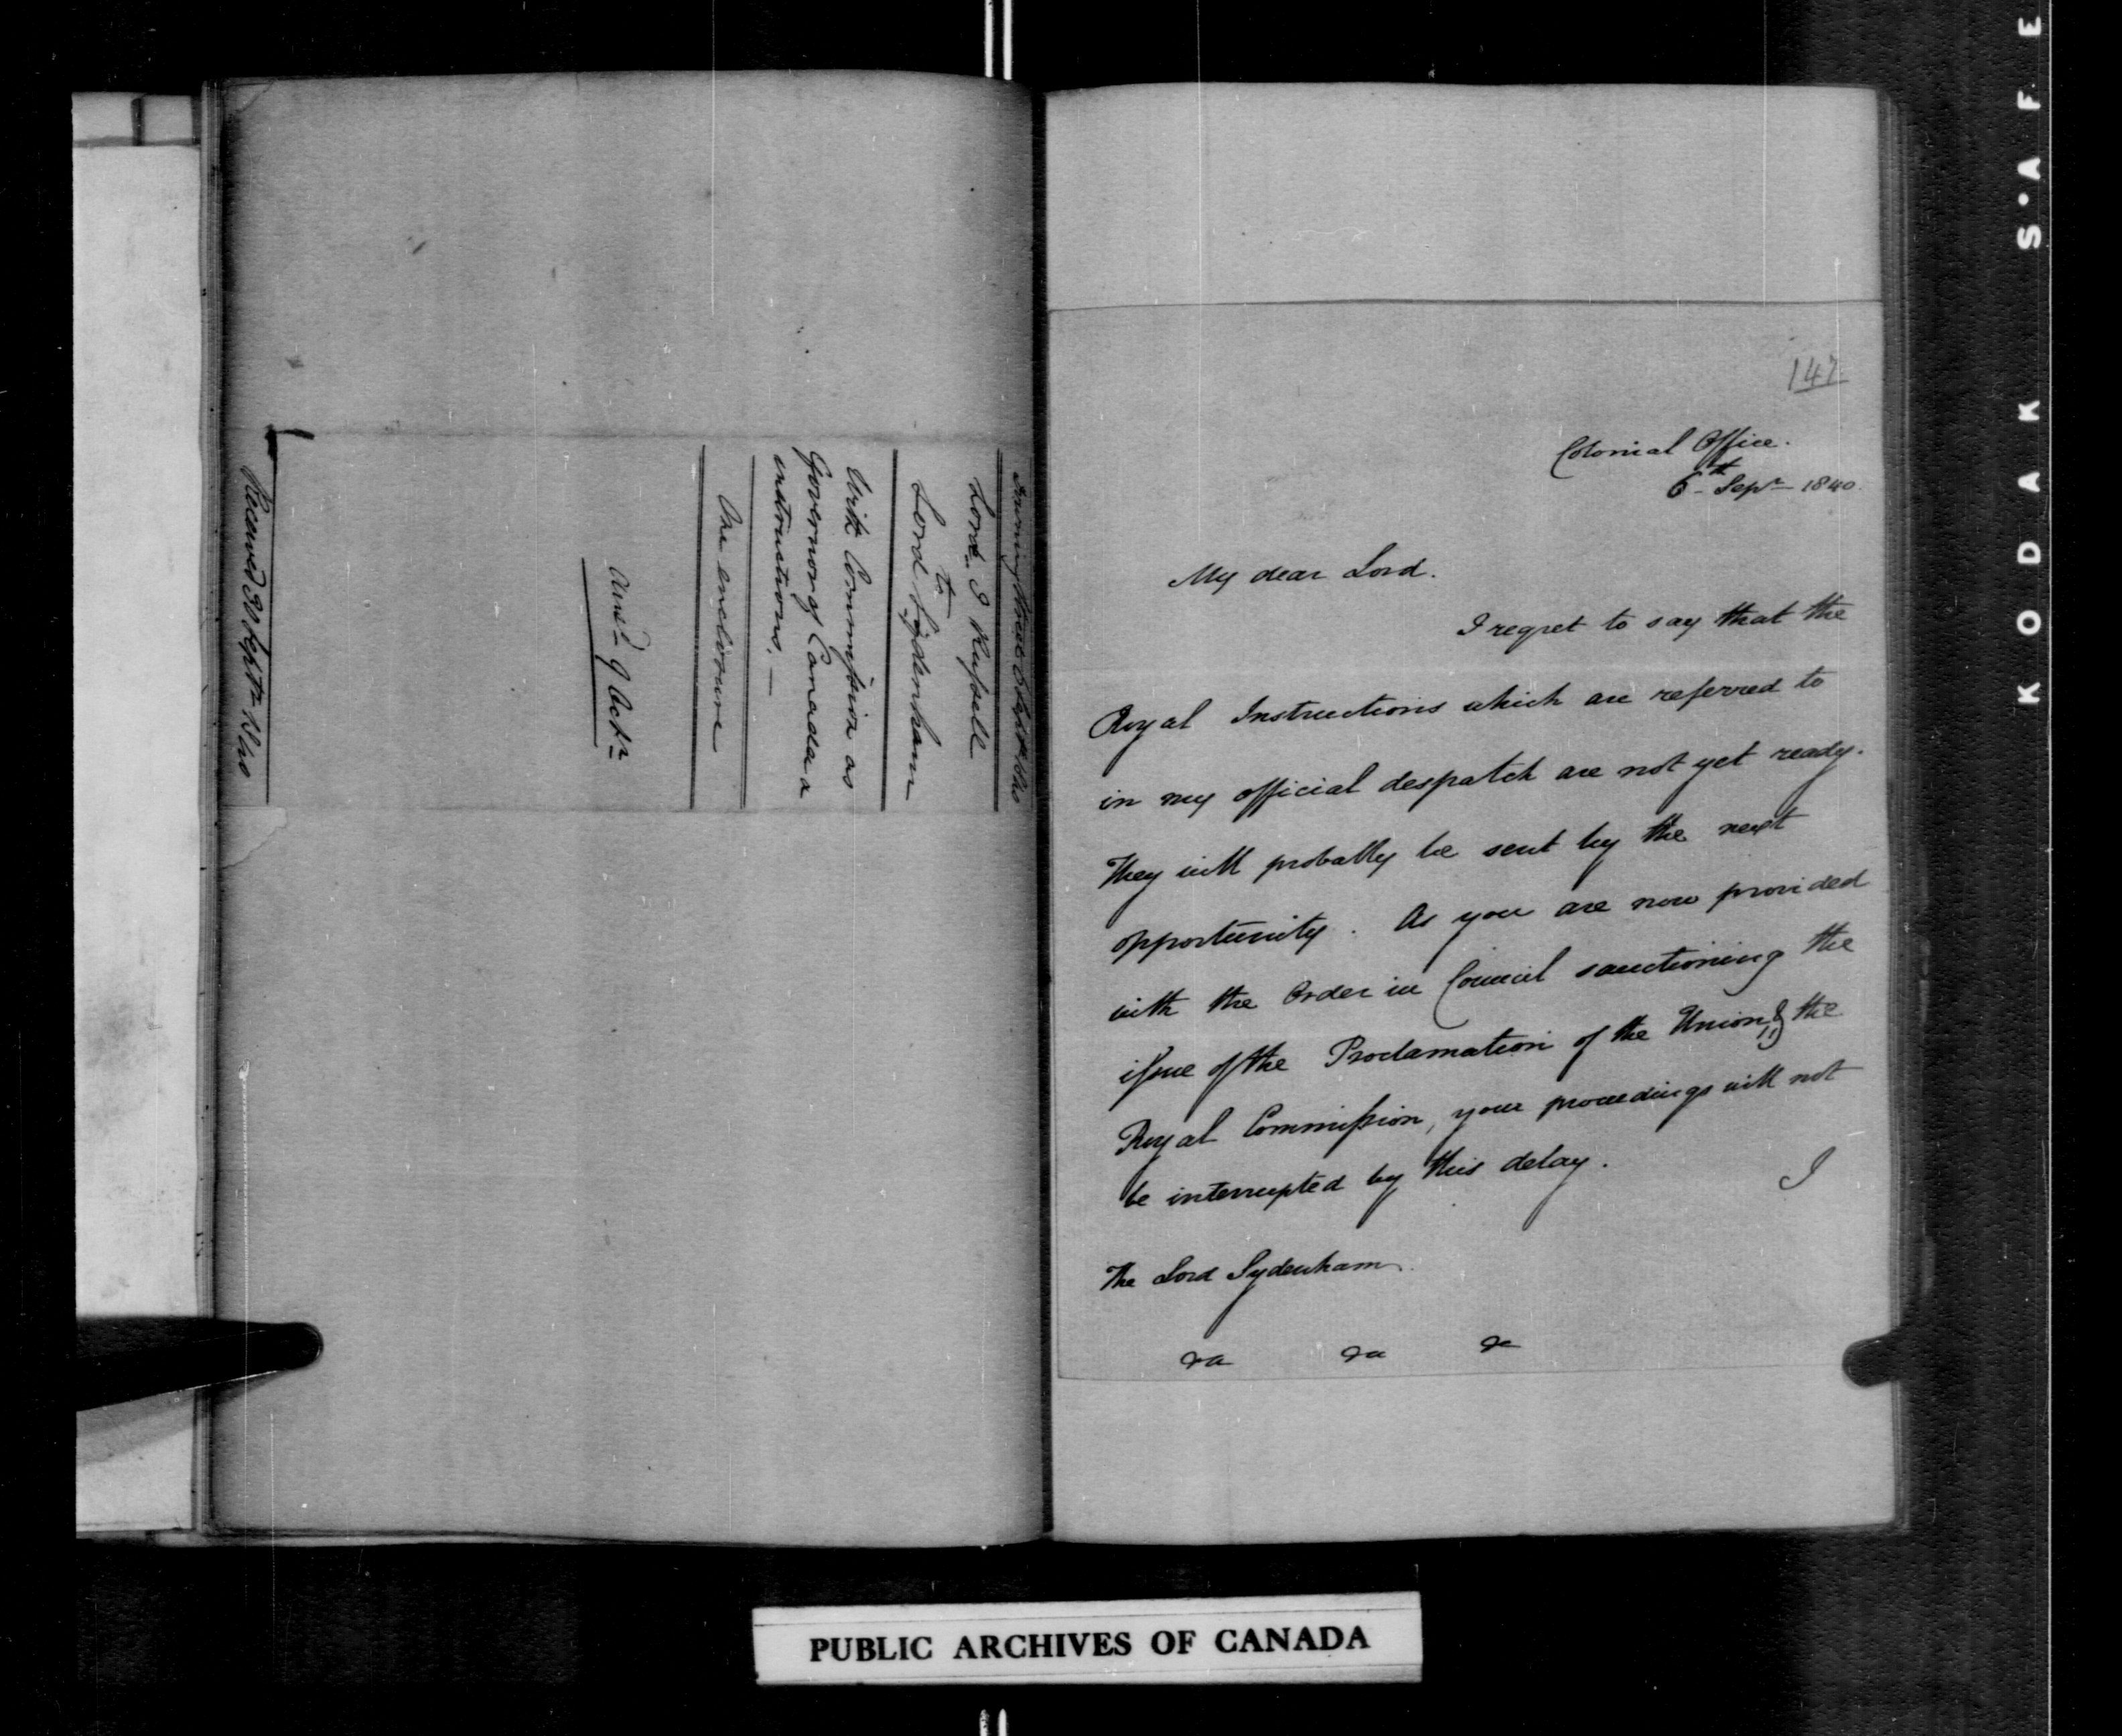 Downing Street
Lord J Russell
to
Lord Sydenham
With Commission as
Governor of Canada &
instructions. —
One enclosure
Answd 9 Octr
Received 30 Septr 1840
147
Colonial Office.
6th Sepr 1840.
My dear Lord.
I regret to say that the
Royal Instructions which are referred to
in my official despatch are not yet ready.
They will probably be sent by the next
opportunity. As you are now provided
with the Order in Council sanctioning the
issue of the Proclamation of the Union, & the
Royal Commission, your proceedings will not
be interrupted by this delay.
I
The Lord Sydenham
&c &c &c
PUBLIC ARCHIVES OF CANADA
KODAK S·AFE